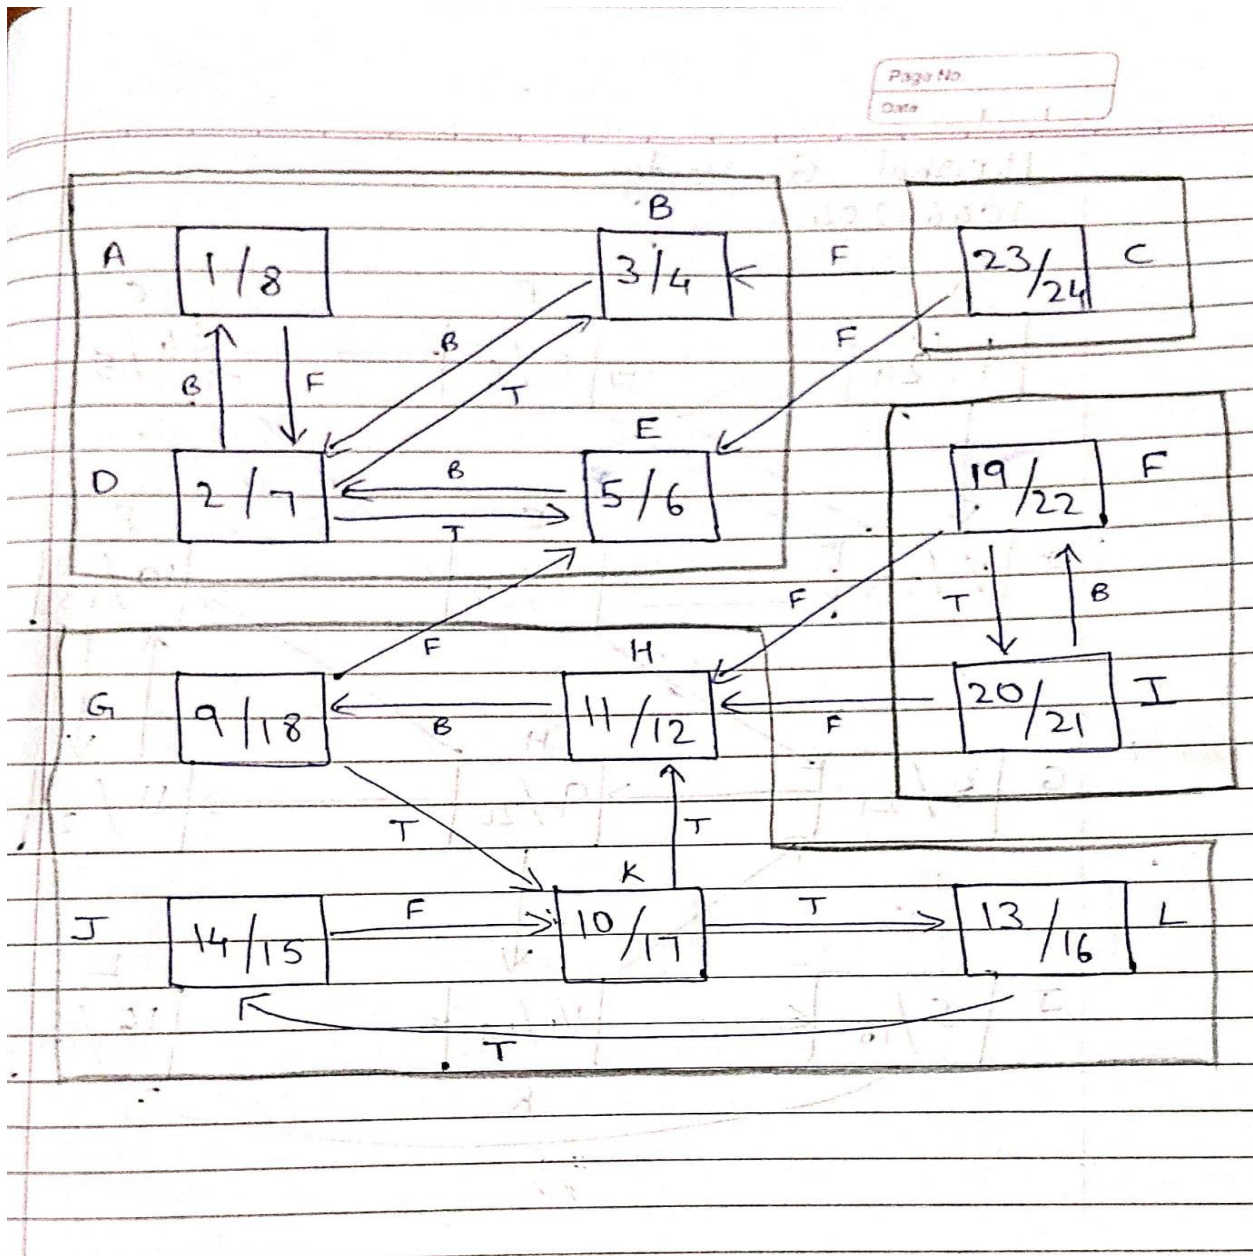 Page No
Date
B
A 1/8 3/4 F 23/24 C
B F B T F
E
D 2/7 B 5/6 19/22 F
T
F T B
F H
G 9/18 B 11/12 F 20/21 I
T T
K
J 14/15 F 10/17 T 13/16 L
T